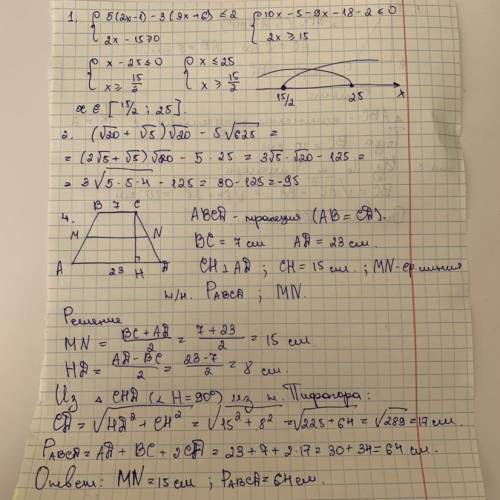 1. { 5(2x-1) - 3(3x+6) ≤ 2   { 10x - 5 - 9x - 18 - 2 ≤ 0
2x - 15 ≥ 0   2x ≥ 15
{ x - 25 ≤ 0   { x ≤ 25
x ≥ 15/2   x ≥ 15/2
15/2   25   x
x ∈ [15/2 ; 25].
2. (√20 + √5)√20 - 5√625 =
= (2√5 + √5)√20 - 5·25 = 3√5·√20 - 125 =
= 3√5·5·4 - 125 = 30 - 125 = -95
4. B 7 C   ABCD - трапеция (AB = CD).
M N   BC = 7 см   AD = 23 см.
A 23 H D   CH ⊥ AD ; CH = 15 см. ; MN - ср. линия
Н/н. P ABCD ; MN.
Решение
MN = (BC + AD)/2 = (7 + 23)/2 = 15 см.
HD = (AD - BC)/2 = (23 - 7)/2 = 8 см.
Из △ CHD (∠ H = 90°) из т. Пифагора:
CD = √HD² + CH² = √15² + 8² = √225 + 64 = √289 = 17 см.
P ABCD = AD + BC + 2CD = 23 + 7 + 2·17 = 30 + 34 = 64 см.
Ответ: MN = 15 см ; P ABCD = 64 см.